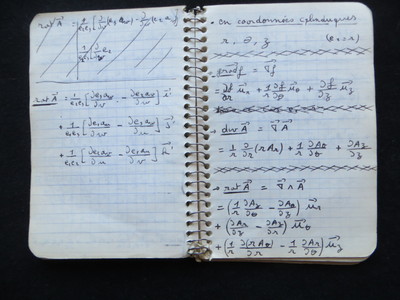 rot A⃗ = 1/e₁e₂ [∂/∂u (e₂ a_w) - ∂/∂v (e₁ a_u)]
rot A⃗ = 1/e₂e₃ [∂e₃a_w/∂v - ∂e₂a_v/∂w] i⃗
+ 1/e₁e₃ [∂e₁a_u/∂w - ∂e₃a_w/∂u] j⃗
+ 1/e₁e₂ [∂e₂a_v/∂u - ∂e₁a_u/∂v] k⃗
• en coordonnées cylindriques
r, θ, z (e₂=r)
• grad f = ∇⃗f
= ∂f/∂r u⃗r + 1/r ∂f/∂θ u⃗θ + ∂f/∂z u⃗z
• div A⃗ = ∇⃗ A⃗
= 1/r ∂/∂r (rAr) + 1/r ∂Aθ/∂θ + ∂Az/∂z
• rot A⃗ = ∇⃗ ∧ A⃗
= (1/r ∂Az/∂θ - ∂Aθ/∂z) u⃗r
+ (∂Ar/∂z - ∂Az/∂r) u⃗θ
+ (1/r ∂(rAθ)/∂r - 1/r ∂Ar/∂θ) u⃗z